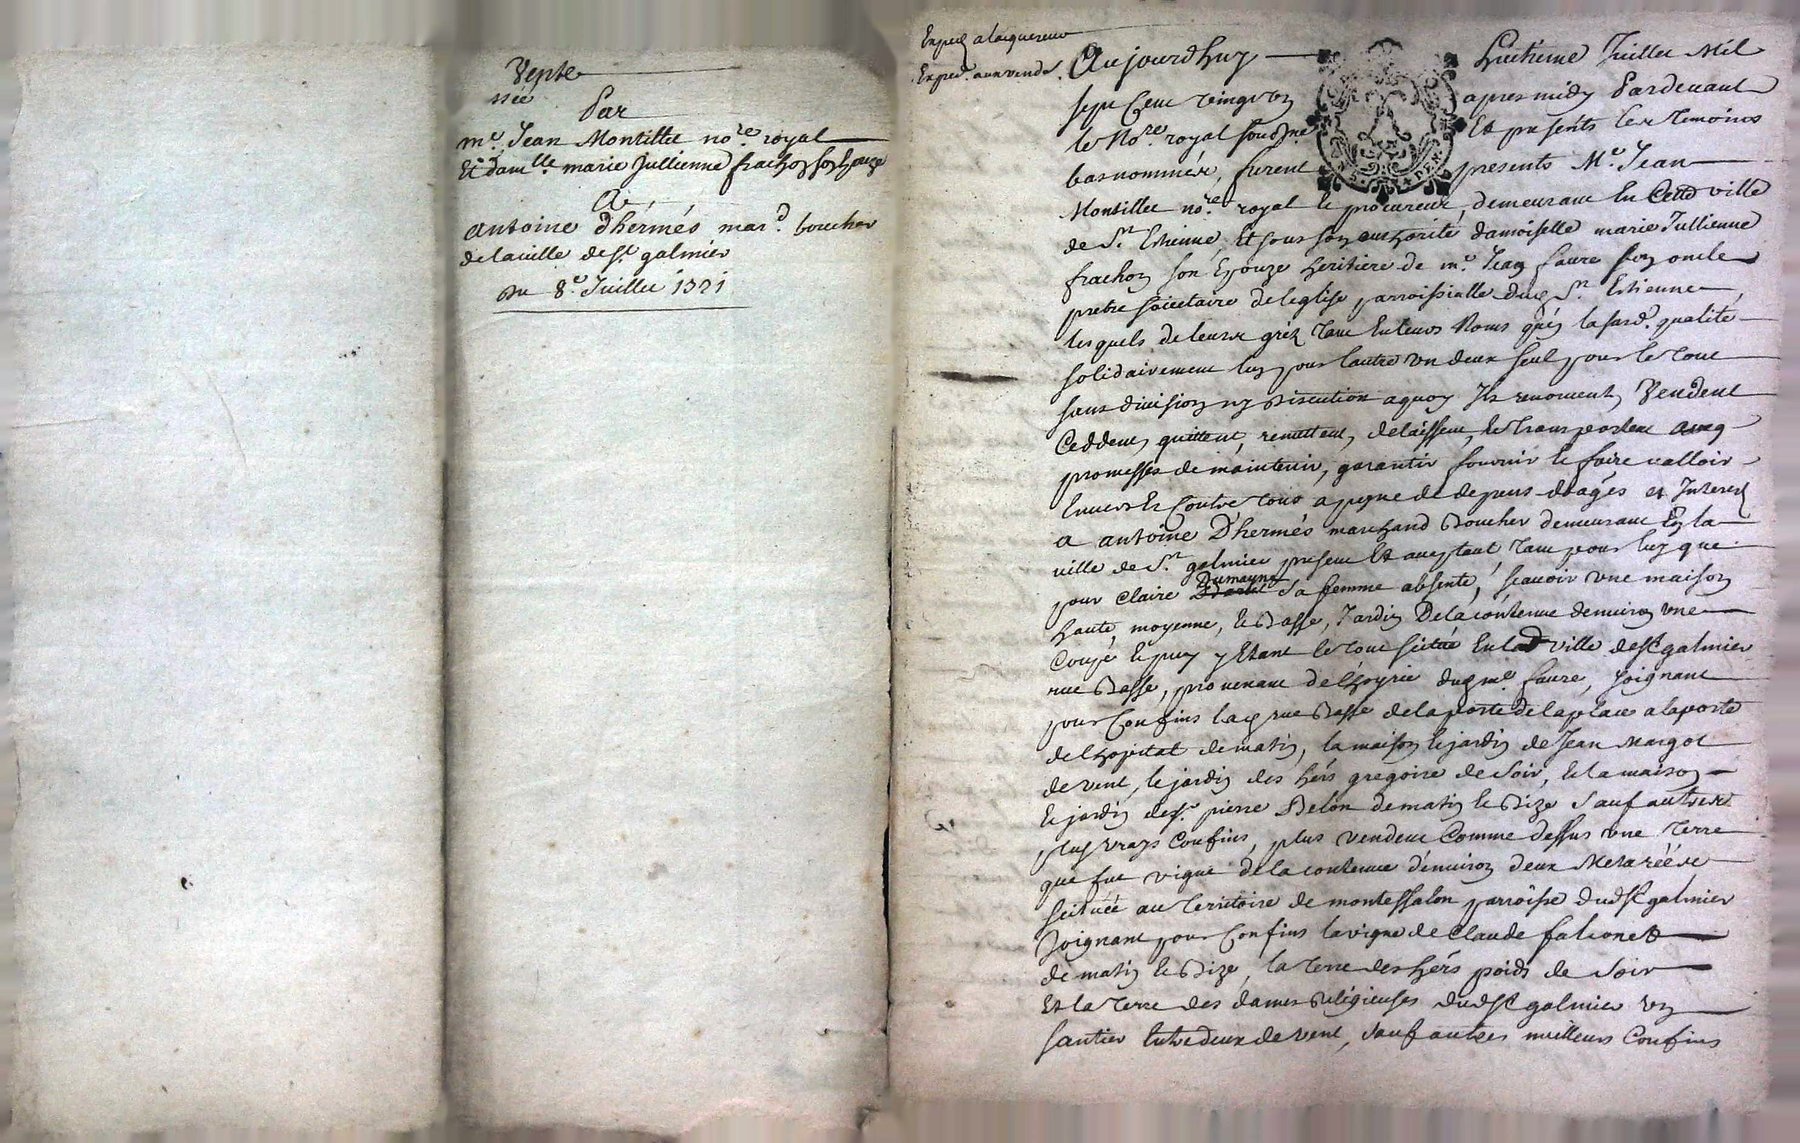 Vente
Par
me. Jean Montillet nore. royal
Et damlle. marie Jullienne frachon son Epouze
A
antoine Dhermés mard. boucher
de la ville de St. galmier
Du 8e. Juillet 1721
Exped a lacquereur
Exped. aux vendrs.
Aujourdhuy huitieme Juillet Mil
sept Cent vingt un apres midy Pardevant
le Nore. royal soussné Et presents les temoins
bas nommés, furent presents Me. Jean
Montillet nore. royal et procureur, demeurant En Cette ville
de St. Etienne, Et sous son authorité damoiselle marie Jullienne
frachon son Epouze heritiere de me. Jean faure son oncle
pretre socictaire de leglise parroissialle dud St. Etienne,
lesquels de leurs grez tant En leurs Noms qu'en lasusd. qualité
solidairement lun pour lautre un deux seul pour le tout
sans division ny discution a quoy Ils renoncent, Vendent
Ceddent, quittent, remettent, delaissent, Et transportent avec
promesses de maintenir, garantir fournir Et faire valloir
Envers Et Contre tous a peyne de depens dhages et Interest
a antoine Dhermés marchand Boucher demeurant En la
ville de St. galmier present Et acceptant tant pour luy que
pour Claire Dumayne sa femme absente, scavoir une maison
haute, moyenne, Et Basse, Jardin De la contenue denviron une
Coupé Et puy y Etant le tout scitué En lad ville de St galmier
rue Basse, provenant de l'hoyrie dud me. faure, Joignant
pour Confins lad rue Basse de la porte de la place a la porte
de l'hopital de matin, la maison Et jardin de Jean Margot
de vent, le jardin des hérs gregoire de Soir, Et la maison
Et jardin de sr. pierre Delon de matin Et Bize sauf autres
plus vrays Confins, plus vendent Comme dessus une terre
que fut vigne de la contenue denviron deux Meterées
scituée au territoire de montessalon parroisse dud St galmier
Joignant pour Confins la vigne de Claude falconet
de matin Et Bize, la terre des hérs poids de Soir
Et la terre des dames Religieuses dud St galmier un
santier Entredeux de vent, sauf autres meilleurs Confins